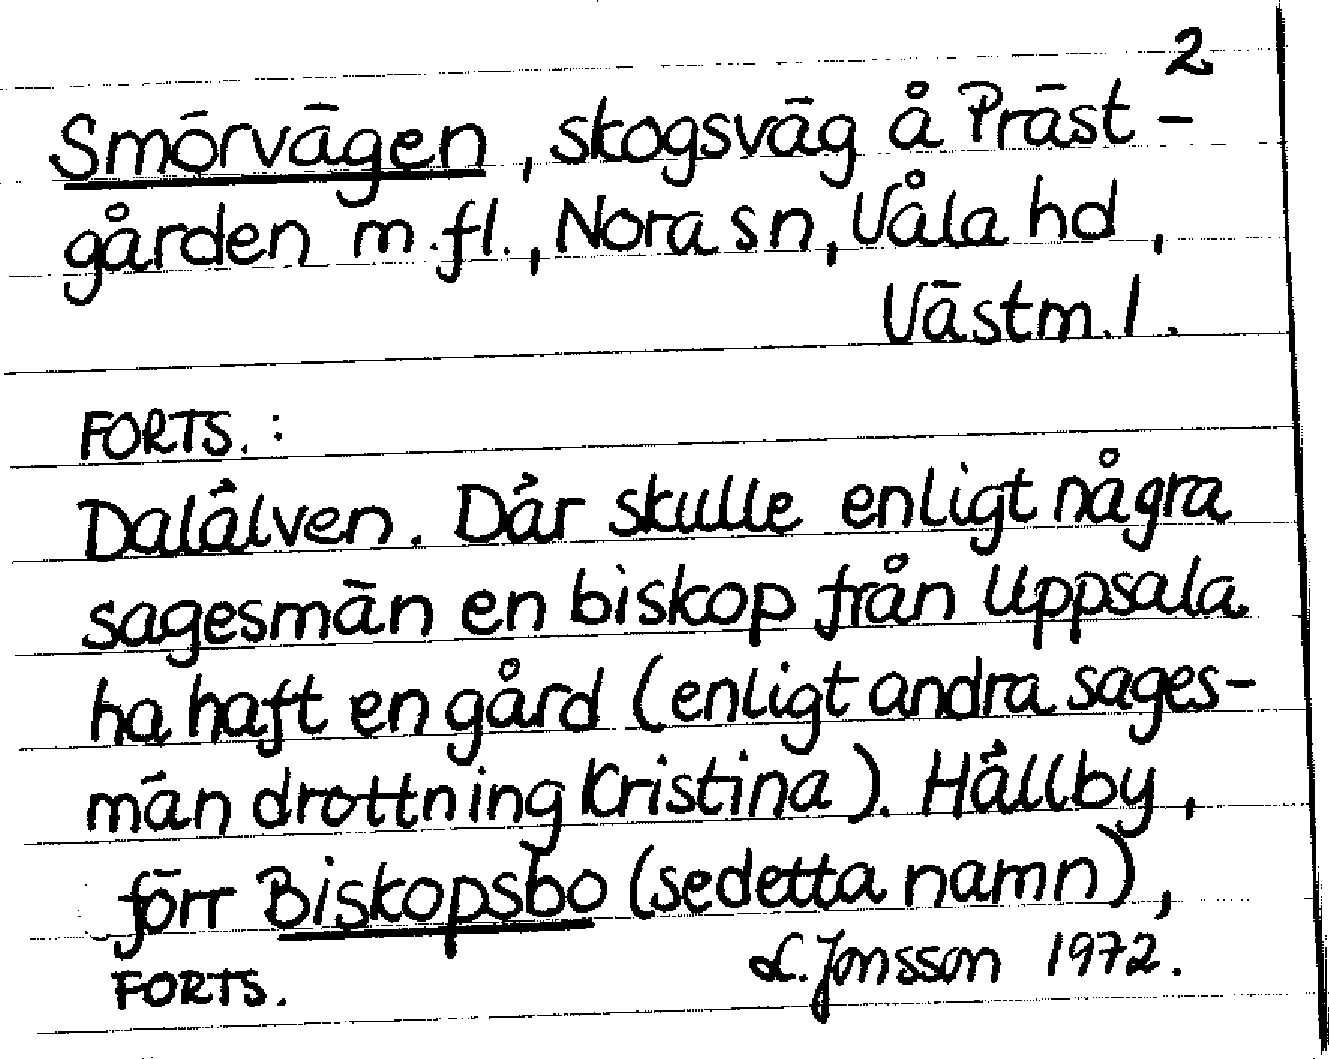 2
Smörvägen, skogsväg å Präst-
gården m.fl., Nora sn, Våla hd,
Västm. l.
FORTS. :
Dalälven. Där skulle enligt några
sagesmän en biskop från Uppsala
ha haft en gård (enligt andra sages-
män drottning Kristina). Hällby,
förr Biskopsbo (sedetta namn),
FORTS. L. Jonsson 1972.